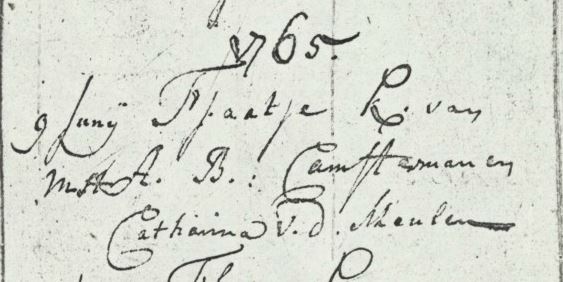 1765.
9 Junij Tjaatje K. van
A. B.: Camsterman en
Catharina v. d. Meulen